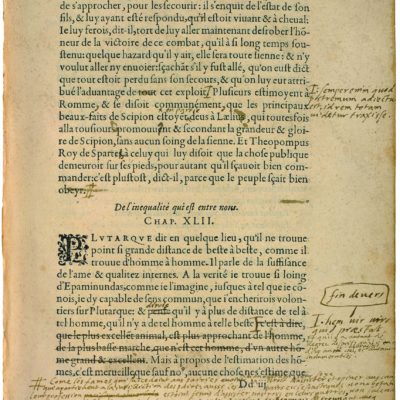 de s'approcher, pour les secourir: il s'enquit de l'estat de son
fils, & luy ayant esté respondu, qu'il estoit viuant & à cheual:
Ie luy ferois, dit-il, tort de luy aller maintenant desrober l'hõ-
neur de la victoire de ce combat, qu'il à si long temps sou-
stenu: quelque hazard qu'il y ait, elle sera toute sienne: & n'y
voulut aller ny enuoier: sçachãt s'il y fust allé, qu'on eust dict
que tout estoit perdu sans son secours, & qu'on luy eut attri-
bué l'aduantage de tout cet exploit. Plusieurs estimoyent à
Romme, & se disoit communement, que les principaux
beaux-faits de Scipion estoyẽt deus à Lælius, qui toutesfois
alla tousiours promouuãt & secondant la grandeur & gloi-
re de Scipion, sans aucun soing de la sienne. Et Theopompus
Roy de Sparte à celuy qui luy disoit que la chose publique
demeuroit sur ses pieds, pour autant qu'il sçauoit bien com-
mander: c'est plustost, dit-il, parce que le peuple sçait bien
obeyr.
I. semper enim quod
postremum adiectum
est id rem totam
videtur traxisse.
De l'inequalité qui est entre nous.
CHAP. XLII.
PLVTARQVE dit en quelque lieu, qu'il ne trouue
point si grande distance de beste à beste, comme il
trouue d'hõme à homme. Il parle de la suffisance
de l'ame & qualitez internes. A la verité ie trouue si loing
d'Epaminundas, comme ie l'imagine, iusques à tel que ie co-
nois, ie dy capable de sens commun, que i'encherirois volon-
tiers sur Plutarque: & dirois qu'il y a plus de distance de tel à
tel homme, qu'il n'y a de tel homme à telle beste: c'est à dire,
que le plus excellent animal, est plus approchant de l'homme,
de la plus basse marche, que n'est cet homme, d'vn autre hõme
grand & excellent. Mais à propos de l'estimation des hõ-
mes, c'est merueille que sauf nous, aucune chose ne s'estime que
Dd iij
fin de vers
I. hem vir viro
quid præstat